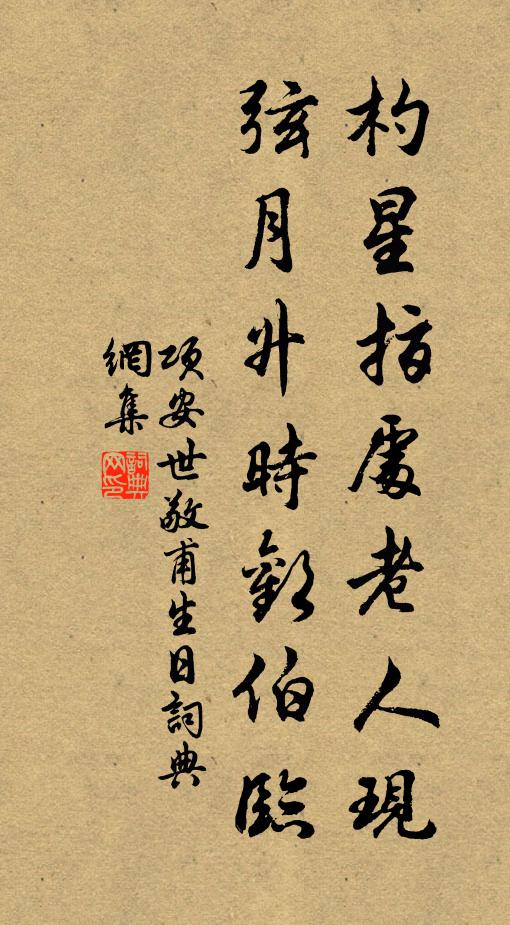 杓星指處老人現
弦月升時歡伯臨
項安世敬甫生日詞典
網集
詞典網印